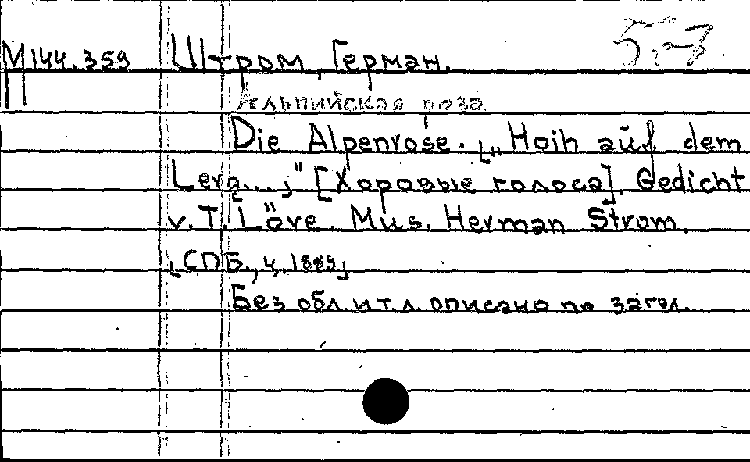 М144.359 Штром, Герман. 5.-7
Альпийская роза
Die Alpenrose. „Hoih auf dem
Lerg...," [Хоровые голоса]. Gedicht
v. T. Löve. Mus. Herman Strom.
[СПб., ц. 1889]
Без обл. и т.л. описано по загл.